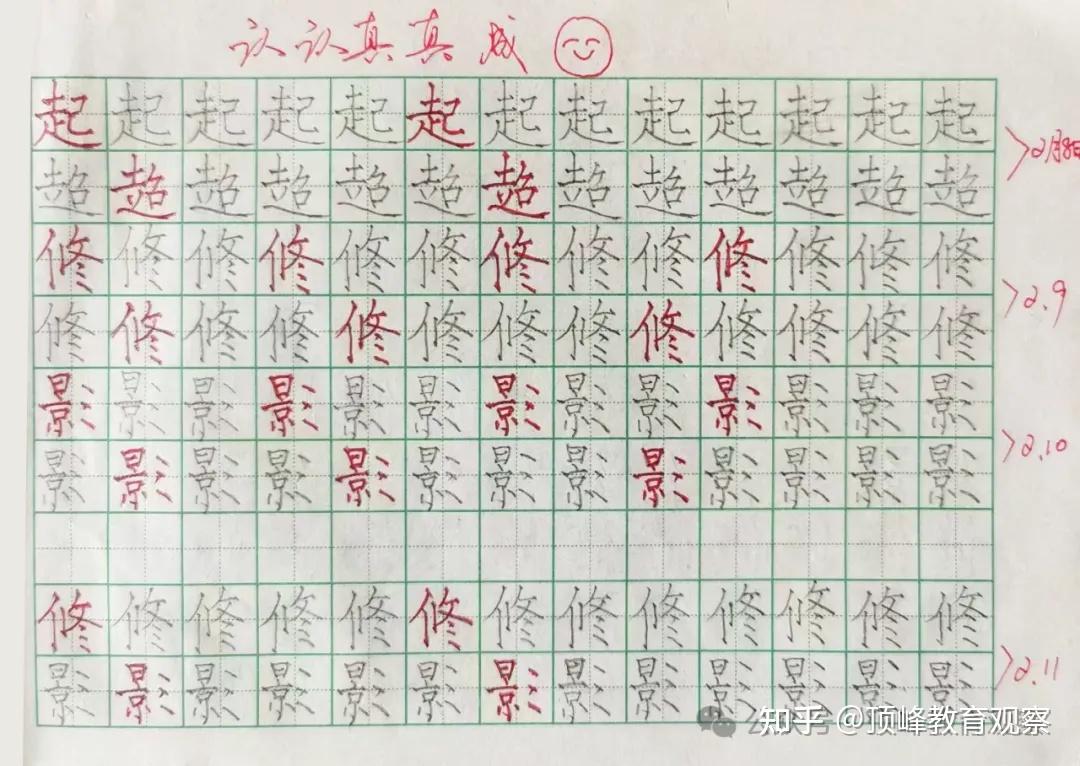 认认真真成
起起起起起起起起起起起起起 2月8日
超超超超超超超超超超超超超
修修修修修修修修修修修修修 2.9
修修修修修修修修修修修修修
影影影影影影影影影影影影影 2.10
影影影影影影影影影影影影影
修修修修修修修修修修修修修
影影影影影影影影影影影影影 2.11
知乎 @顶峰教育观察